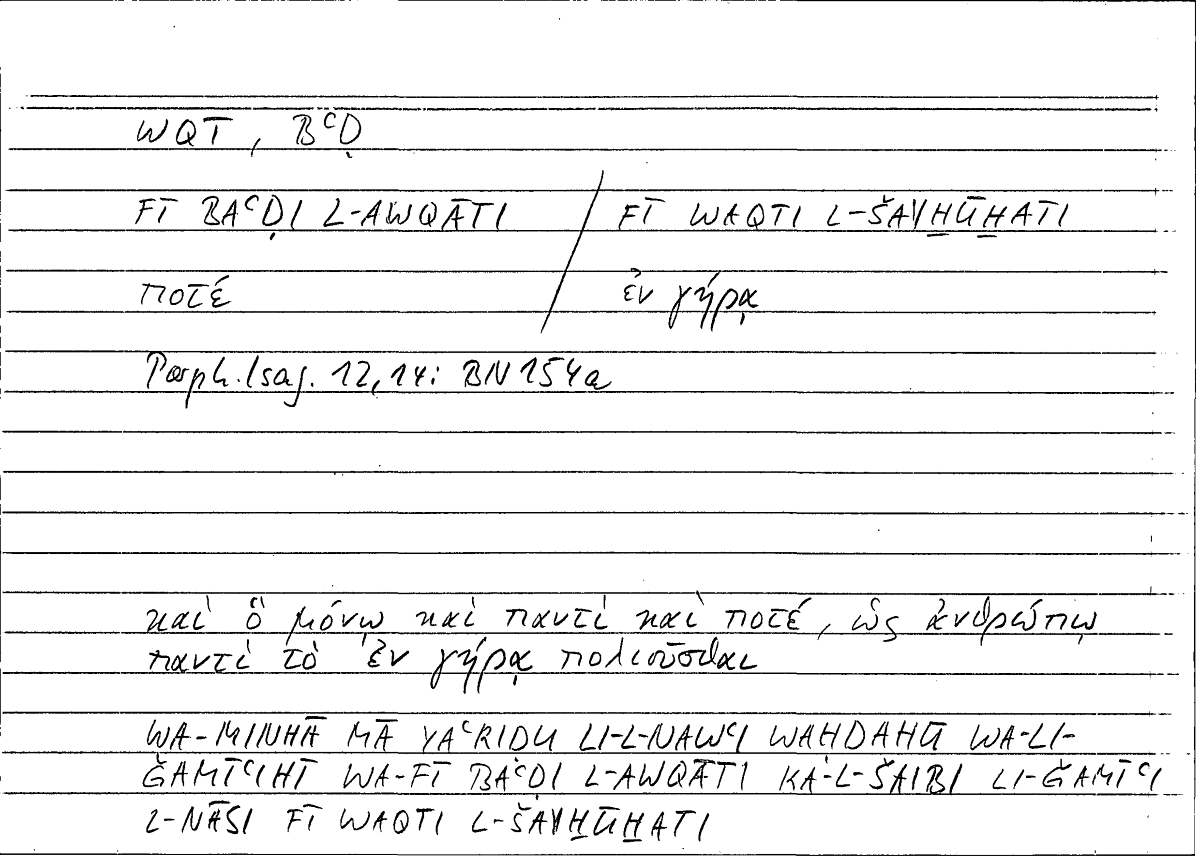 WQT, BᶜḌ
FĪ BAᶜḌI L-AWQĀTI / FĪ WAQTI L-ŠAYH̱ŪH̱ATI
ποτέ ἐν γήρᾳ
Porph. Isag. 12,14: BN 154a
καὶ ὃ μόνῳ καὶ παντὶ καὶ ποτέ, ὡς ἀνθρώπῳ
παντὶ τὸ ἐν γήρᾳ πολιοῦσθαι
WA-MINHĀ MĀ YAᶜRIDU LI-L-NAWᶜI WAHDAHŪ WA-LI-
ǦAMĪᶜIHĪ WA-FĪ BAᶜḌI L-AWQĀTI KA-L-ŠAIBI LI-ǦAMĪᶜI
L-NĀSI FĪ WAQTI L-ŠAYH̱ŪH̱ATI